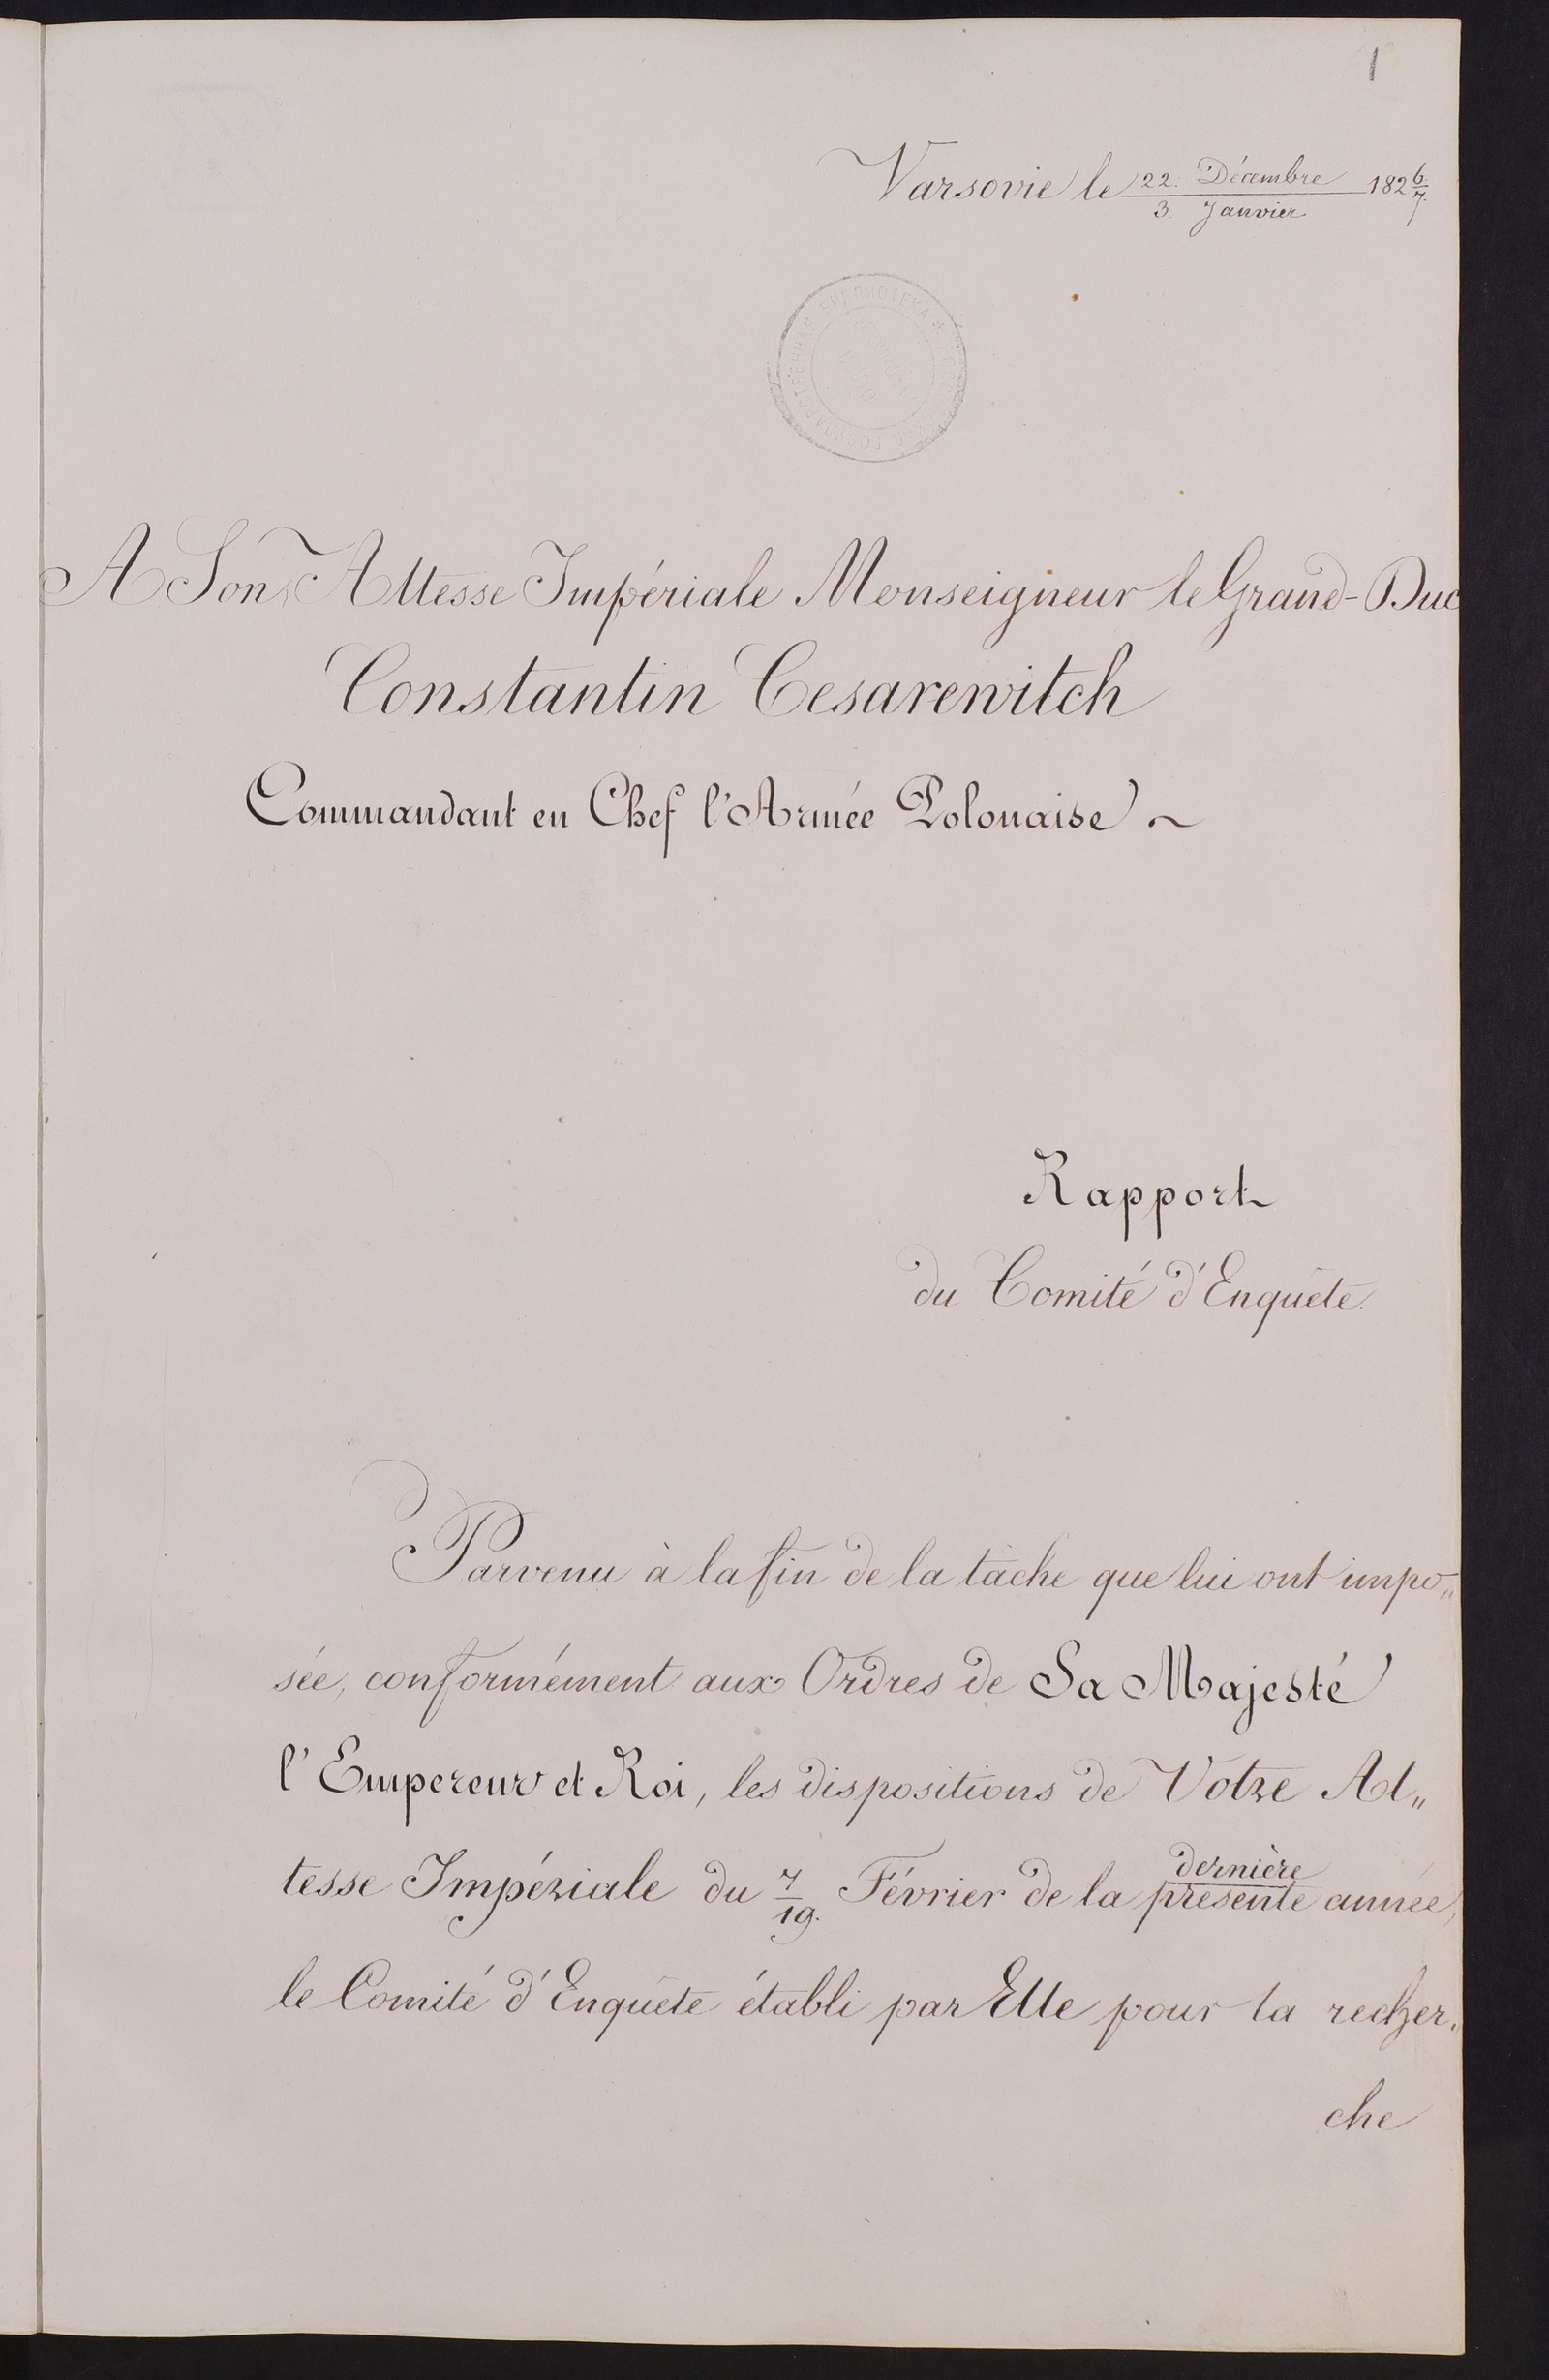 1
Varsovie le 22. Décembre 1826.
3. Janvier 7.
БИБЛИОТЕКА
A Son Altesse Impériale Monseigneur le Grand-Duc
Constantin Cesarewitch
Commandant en Chef l'Armée Polonaise ~
Rapport
du Comité d'Enquête.
Parvenu à la fin de la tâche que lui ont impo„
sée, conformément aux Ordres de Sa Majesté
l'Empereur et Roi, les dispositions de Votre Al„
dernière
tesse Impériale du 7/19. Février de la présente année,
le Comité d'Enquête établi par Elle pour la recher„
che